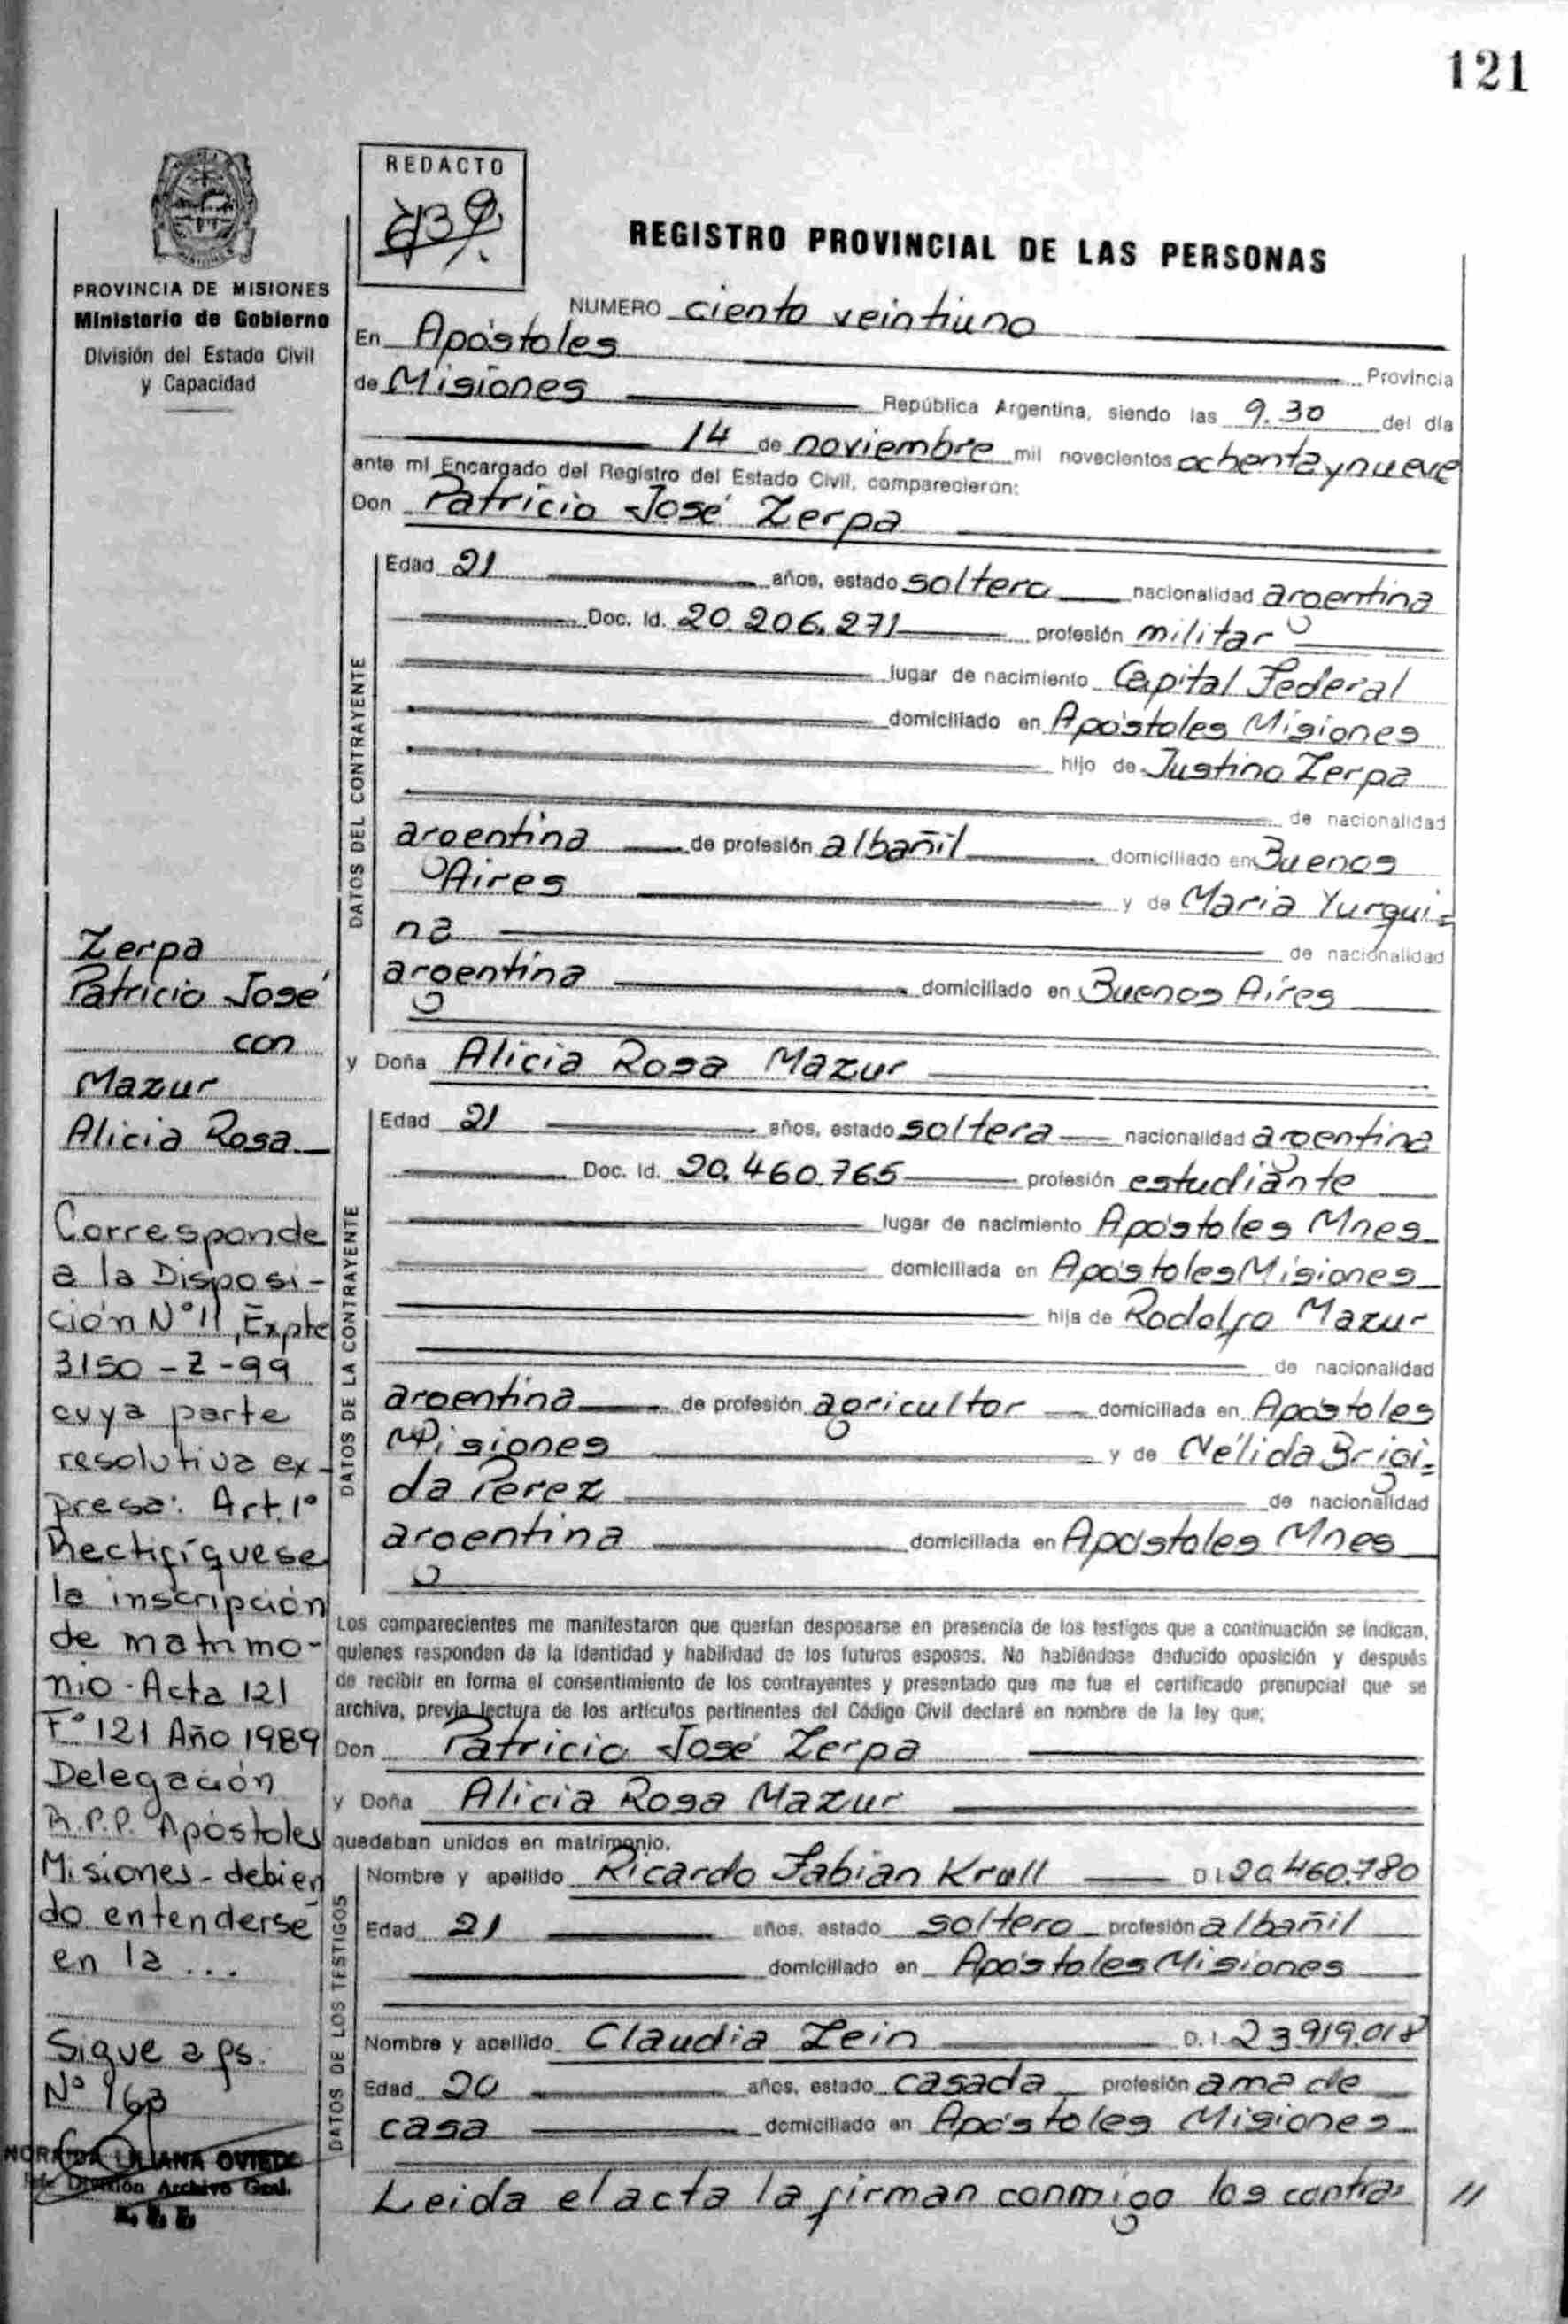 121
REDACTO
REGISTRO PROVINCIAL DE LAS PERSONAS
PROVINCIA DE MISIONES
Ministerio de Gobierno
División del Estado Civil
y Capacidad
NUMERO ciento veintiuno
En Apóstoles
Provincia
de Misiones República Argentina, siendo las 9.30 del día
14 de noviembre mil novecientos ochenta y nueve
ante mí Encargado del Registro del Estado Civil, comparecieron:
Don Patricio José Zerpa
DATOS DEL CONTRAYENTE
Edad 21 años, estado soltero nacionalidad argentina
Doc. Id. 20.206.271 profesión militar
lugar de nacimiento Capital Federal
domiciliado en Apóstoles Misiones
hijo de Justino Zerpa
de nacionalidad
argentina de profesión albañil domiciliado en Buenos
Aires y de Maria Yurqui=
na de nacionalidad
argentina domiciliado en Buenos Aires
y Doña Alicia Rosa Mazur
DATOS DE LA CONTRAYENTE
Edad 21 años, estado soltera nacionalidad argentina
Doc. Id. 20.460.765 profesión estudiante
lugar de nacimiento Apóstoles Mnes
domiciliada en Apóstoles Misiones
hija de Rodolfo Mazur
de nacionalidad
argentina de profesión agricultor domiciliada en Apóstoles
Misiones y de Nélida Brigi=
da Perez de nacionalidad
argentina domiciliada en Apóstoles Mnes
Los comparecientes me manifestaron que querían desposarse en presencia de los testigos que a continuación se indican,
quienes responden de la identidad y habilidad de los futuros esposos. No habiéndose deducido oposición y después
de recibir en forma el consentimiento de los contrayentes y presentado que me fue el certificado prenupcial que se
archiva, previa lectura de los artículos pertinentes del Código Civil declaré en nombre de la ley que;
Don Patricio José Zerpa
y Doña Alicia Rosa Mazur
quedaban unidos en matrimonio.
DATOS DE LOS TESTIGOS
Nombre y apellido Ricardo Fabian Krall D.I. 20.460.780
Edad 21 años, estado soltero profesión albañil
domiciliado en Apóstoles Misiones
Nombre y apellido Claudia Zein D.I. 23919.018
Edad 20 años, estado casada profesión ama de
casa domiciliado en Apóstoles Misiones
Leida el acta la firman conmigo los contra= //
Zerpa
Patricio José
con
Mazur
Alicia Rosa
Corresponde
a la Disposi-
ción N° 11, Expte
3150-Z-99
cuya parte
resolutiva ex-
presa: Art. 1°
Rectifíquese
la inscripción
de matrimo-
nio - Acta 121
F° 121 Año 1989
Delegación
R.P.P. Apóstoles
Misiones - debien
do entenderse
en la ...
Sigue a fs.
N° 163
LILIANA OVIEDO
División Archivo Gral.